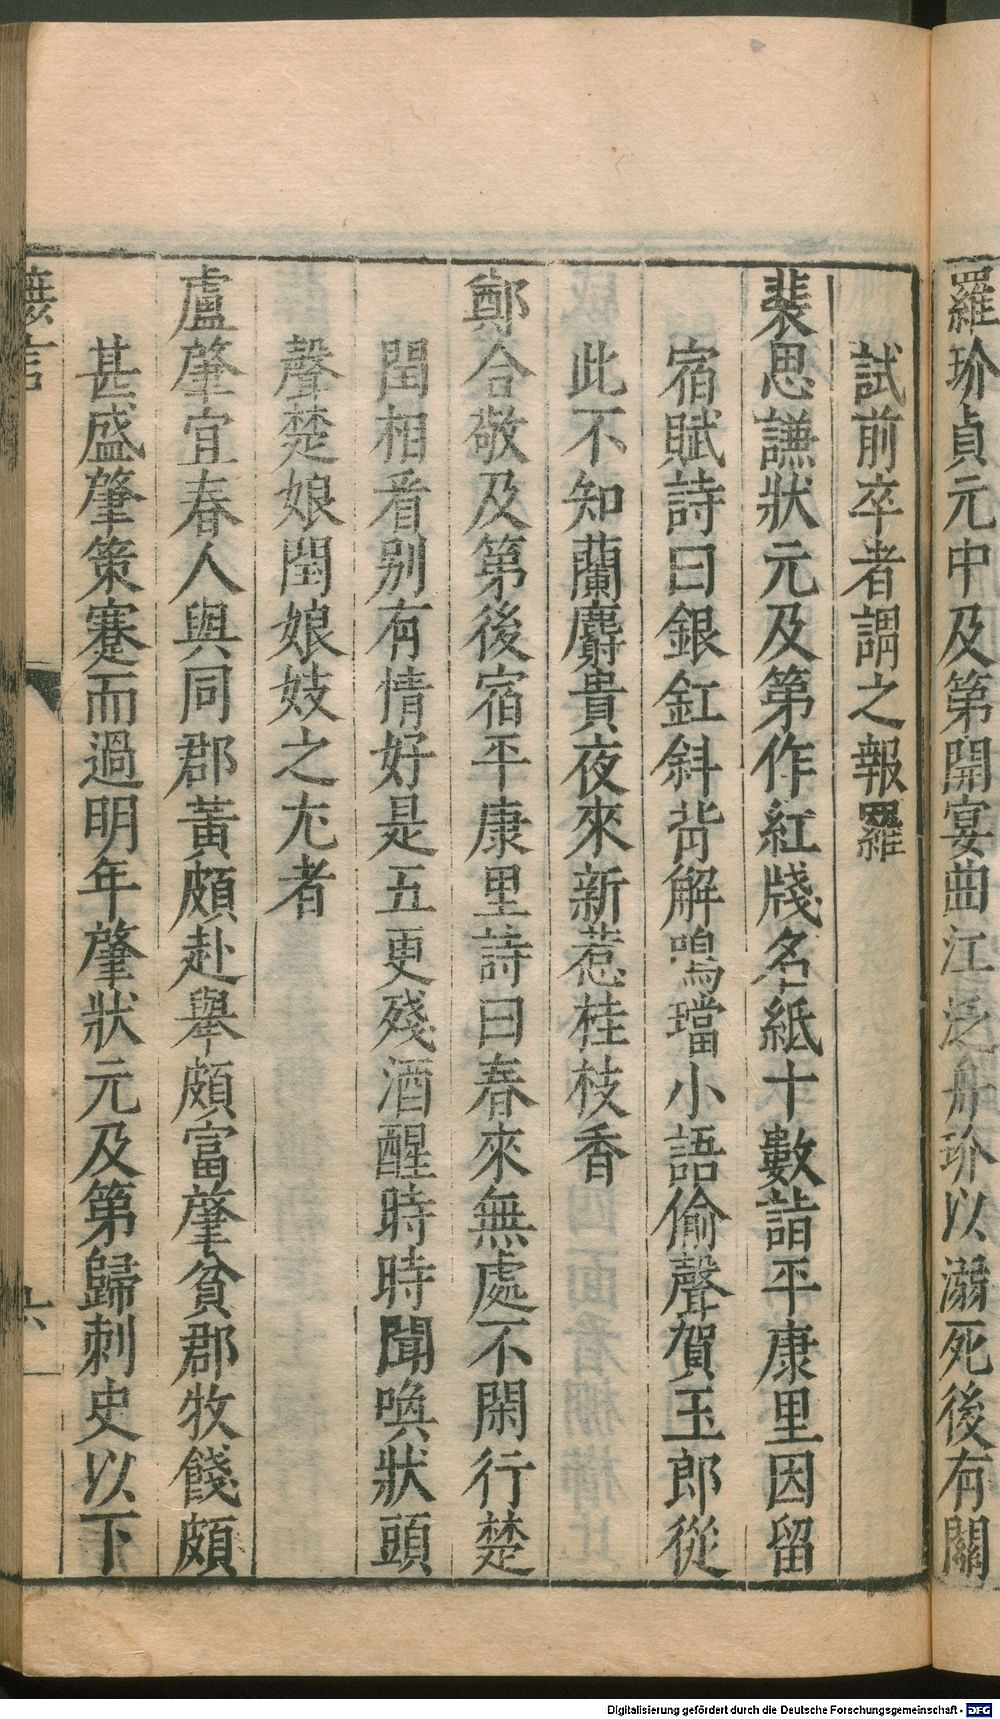 羅玠貞元中及第開宴曲江泛舟玠以溺死後有關
試前卒者謂之報羅
裴思謙狀元及第作紅牋名紙十數詣平康里因留
宿賦詩曰銀釭斜背解鳴璫小語偷聲賀玉郎從
此不知蘭麝貴夜來新惹桂枝香
鄭合敬及第後宿平康里詩曰春來無處不閑行楚
閏相看別有情好是五更殘酒醒時時聞喚狀頭
聲楚娘閏娘妓之尤者
盧肇宜春人與同郡黃頗赴舉頗富肇貧郡牧餞頗
甚盛肇策蹇而過明年肇狀元及第歸刺史以下
摭言
六
Digitalisierung gefördert durch die Deutsche Forschungsgemeinschaft - DFG